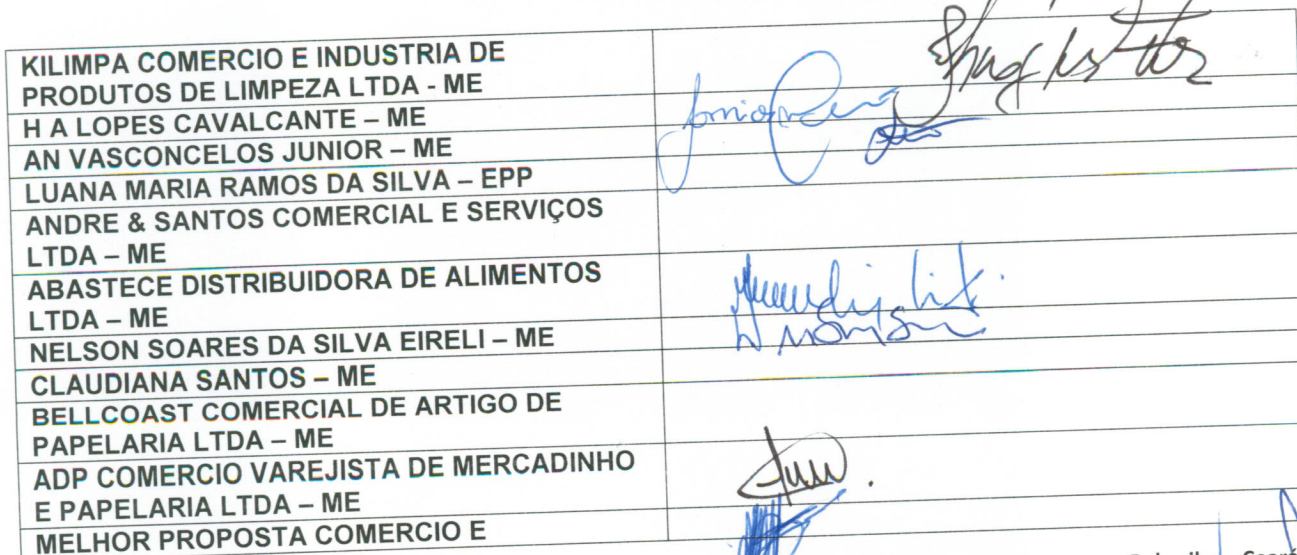 KILIMPA COMERCIO E INDUSTRIA DE
PRODUTOS DE LIMPEZA LTDA - ME
H A LOPES CAVALCANTE – ME
AN VASCONCELOS JUNIOR – ME
LUANA MARIA RAMOS DA SILVA – EPP
ANDRE & SANTOS COMERCIAL E SERVIÇOS
LTDA – ME
ABASTECE DISTRIBUIDORA DE ALIMENTOS
LTDA – ME
NELSON SOARES DA SILVA EIRELI – ME
CLAUDIANA SANTOS – ME
BELLCOAST COMERCIAL DE ARTIGO DE
PAPELARIA LTDA – ME
ADP COMERCIO VAREJISTA DE MERCADINHO
E PAPELARIA LTDA – ME
MELHOR PROPOSTA COMERCIO E